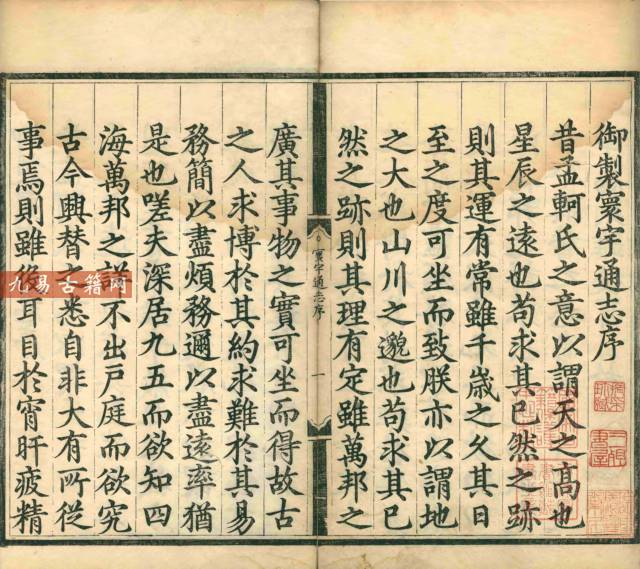 御製寰宇通志序
昔孟軻氏之意以謂天之高也
星辰之遠也苟求其已然之跡
則其運有常雖千歲之久其日
至之度可坐而致朕亦以謂地
之大也山川之邈也苟求其已
然之跡則其理有定雖萬邦之
寰宇通志序
一
廣其事物之實可坐而得故古
之人求博於其約求難於其易
務簡以盡煩務邇以盡遠率猶
是也嗟夫深居九五而欲知四
海萬邦之不出戶庭而欲究
古今興替之悉自非大有所從
事焉則雖耳目於宵旰疲精
九易古籍網